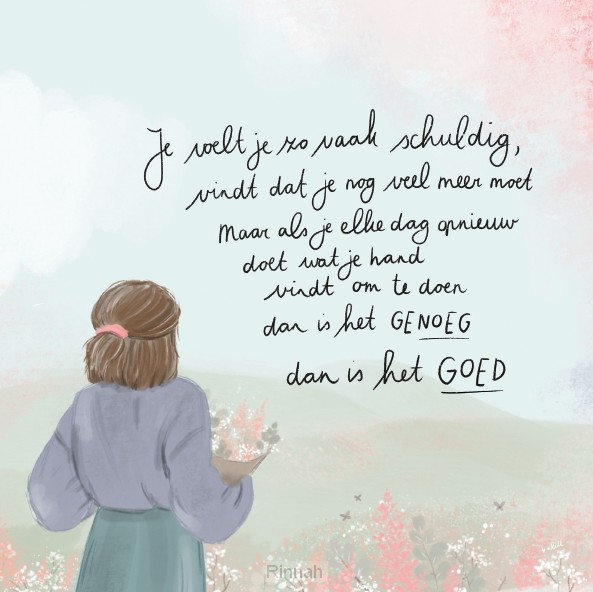 Je voelt je zo vaak schuldig,
vindt dat je nog veel meer moet
Maar als je elke dag opnieuw
doet wat je hand
vindt om te doen
dan is het GENOEG
dan is het GOED
Rinnah